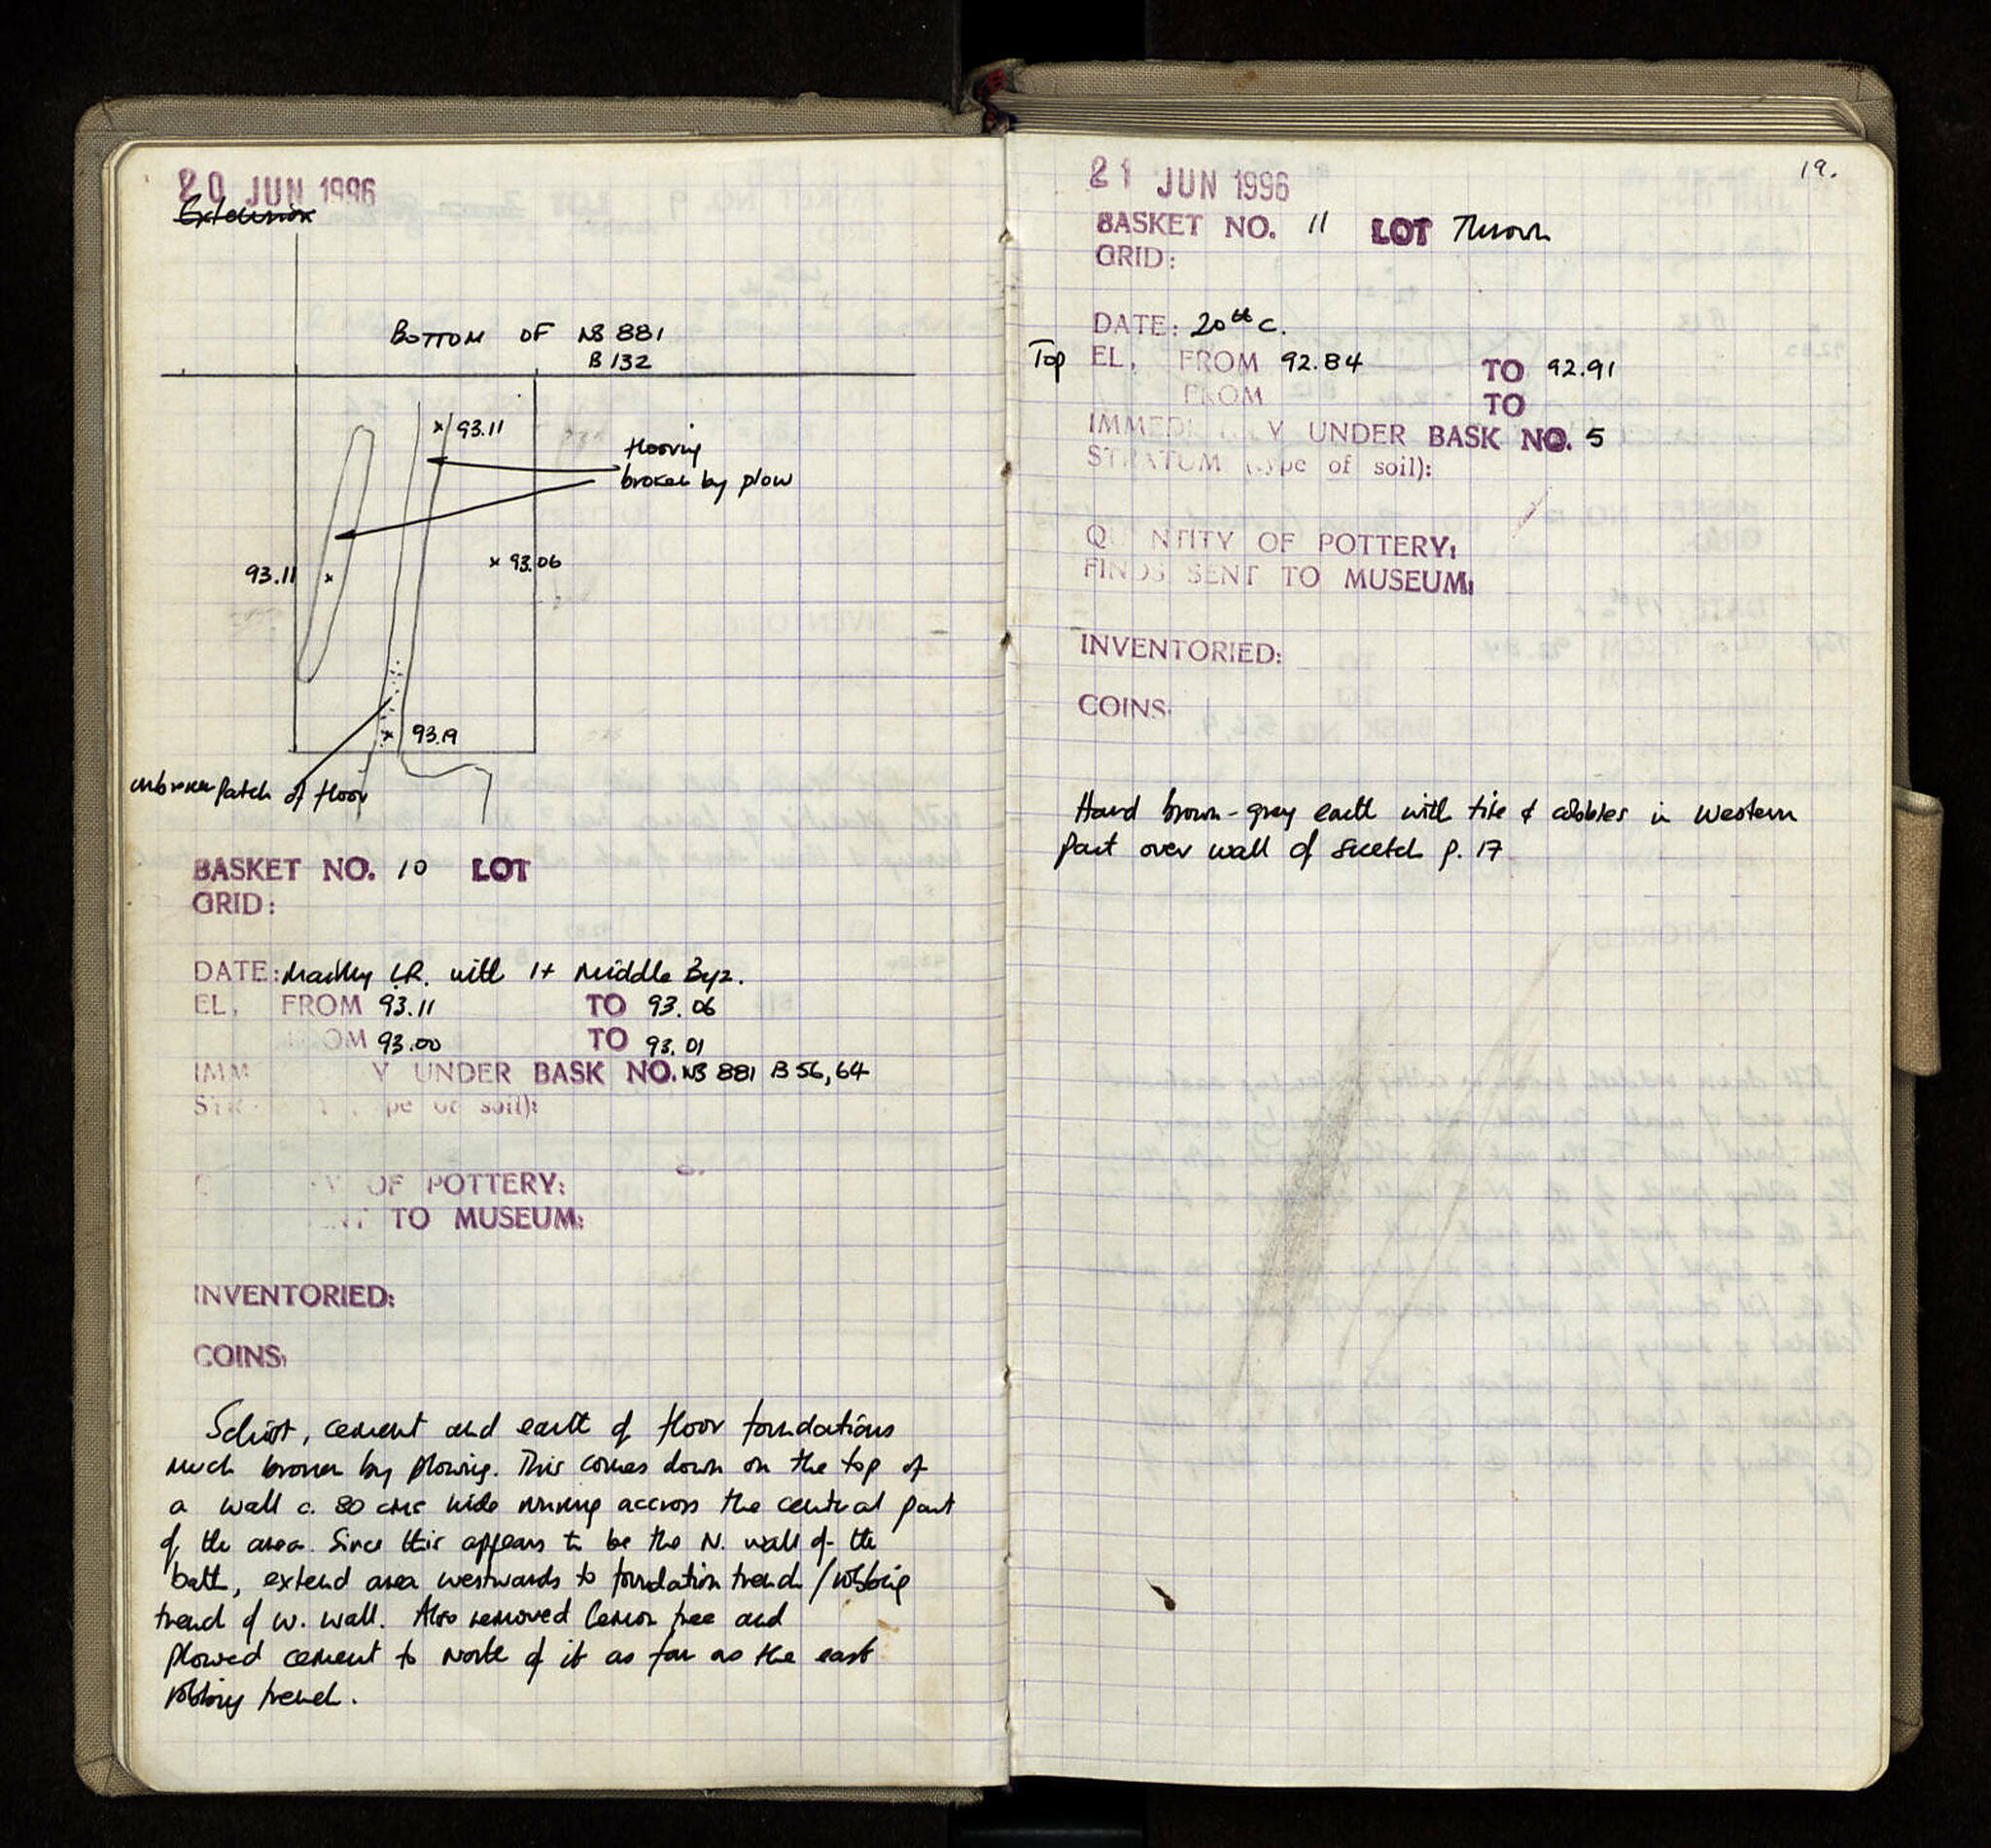 20 JUN 1996
Extension
BOTTOM OF NB 881
B 132
x 93.11
flooring
broken by plow
x 93.06
93.11 x
x 93.19
unbroken patch of floor
BASKET NO. 10 LOT
GRID:
DATE: Mainly L.R. with 1+ Middle Byz.
EL, FROM 93.11 TO 93.06
OM 93.00 TO 93.01
IMM Y UNDER BASK NO. NB 881 B 56, 64
ST pe of soil):
Y OF POTTERY:
NT TO MUSEUM:
INVENTORIED:
COINS:
Schist, cement and earth of floor foundations
much broken by plowing. This comes down on the top of
a wall c. 80 cms wide running accross the central part
of the area. Since this appears to be the N. wall of the
bath, extend area westwards to foundation trench / robbing
trench of W. wall. Also removed lemon tree and
plowed cement to north of it as far as the east
robbing trench.
19.
21 JUN 1996
BASKET NO. 11 LOT Thrown
GRID:
DATE: 20th C.
Top EL, FROM 92.84 TO 92.91
FROM TO
IMMEDI Y UNDER BASK NO. 5
STRATUM (type of soil):
QU NTITY OF POTTERY:
FINDS SENT TO MUSEUM:
INVENTORIED:
COINS:
Hard brown-grey earth with tile & cobbles in western
part over wall of sketch p. 17